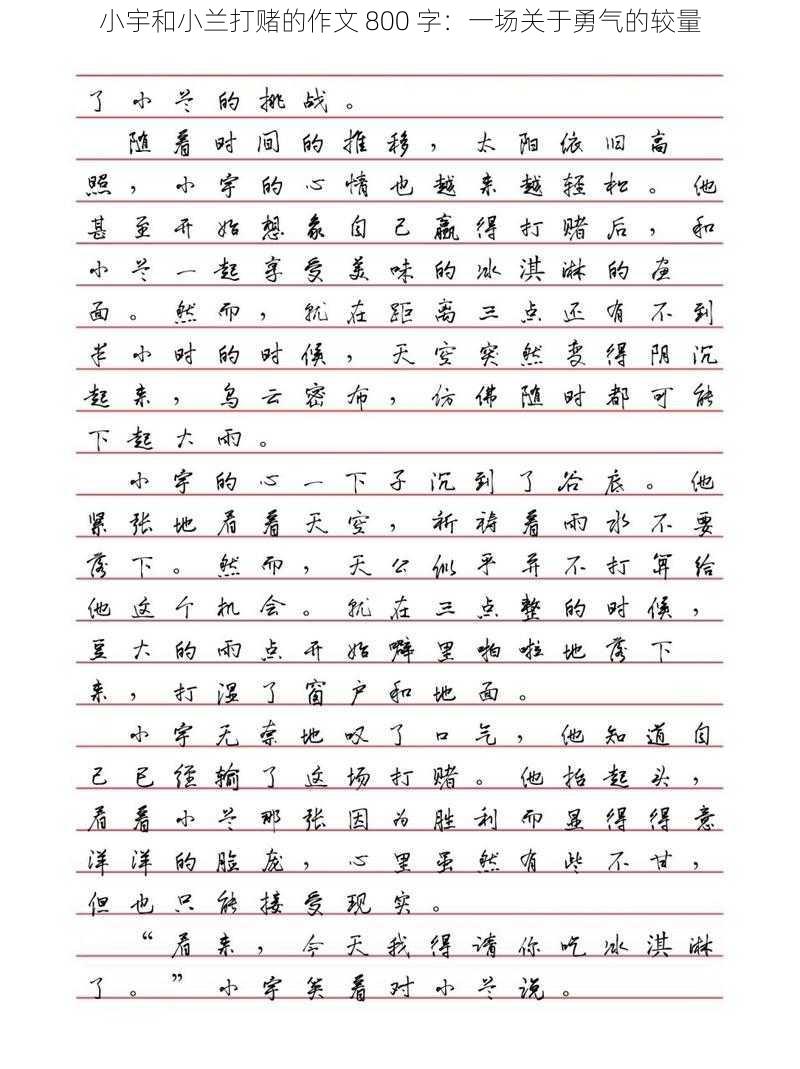 小宇和小兰打赌的作文 800 字：一场关于勇气的较量
了小兰的挑战。
随着时间的推移，太阳依旧高
照，小宇的心情也越来越轻松。他
甚至开始想象自己赢得打赌后，和
小兰一起享受美味的冰淇淋的画
面。然而，就在距离三点还有不到
半小时的时候，天空突然变得阴沉
起来，乌云密布，仿佛随时都可能
下起大雨。
小宇的心一下子沉到了谷底。他
紧张地看着天空，祈祷着雨水不要
落下。然而，天公似乎并不打算给
他这个机会。就在三点整的时候，
豆大的雨点开始噼里啪啦地落下
来，打湿了窗户和地面。
小宇无奈地叹了口气，他知道自
己已经输了这场打赌。他抬起头，
看着小兰那张因为胜利而显得得意
洋洋的脸庞，心里虽然有些不甘，
但也只能接受现实。
“看来，今天我得请你吃冰淇淋
了。”小宇笑着对小兰说。